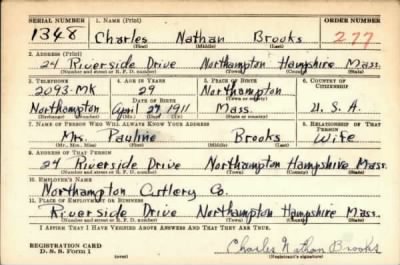 SERIAL NUMBER 1. NAME (Print) ORDER NUMBER
1348 Charles Nathan Brooks 277
(First) (Middle) (Last)
2. ADDRESS (Print)
24 Riverside Drive Northampton Hampshire Mass.
(Number and street or R. F. D. number) (Town) (County) (State)
3. TELEPHONE 4. AGE IN YEARS 5. PLACE OF BIRTH 6. COUNTRY OF CITIZENSHIP
2093-MK 29 Northampton
(Town or county)
DATE OF BIRTH
Northampton April 27 1911 Mass. U. S. A.
(Exchange) (Mo.) (Day) (Yr.) (State or country)
7. NAME OF PERSON WHO WILL ALWAYS KNOW YOUR ADDRESS 8. RELATIONSHIP OF THAT PERSON
Mrs. Pauline Brooks Wife
(Mr., Mrs., Miss) (First) (Middle) (Last)
9. ADDRESS OF THAT PERSON
24 Riverside Drive Northampton Hampshire Mass.
(Number and street or R. F. D. number) (Town) (County) (State)
10. EMPLOYER'S NAME
Northampton Cutlery Co.
11. PLACE OF EMPLOYMENT OR BUSINESS
Riverside Drive Northampton Hampshire Mass.
(Number and street or R. F. D. number) (Town) (County) (State)
I AFFIRM THAT I HAVE VERIFIED ABOVE ANSWERS AND THAT THEY ARE TRUE.
REGISTRATION CARD
D. S. S. Form 1 Charles Nathan Brooks
(Registrant's signature)